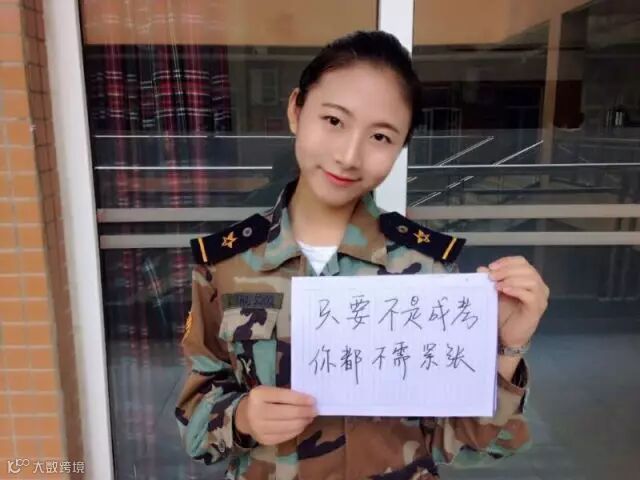 只要不是成考
你都不需紧张
大数跨境